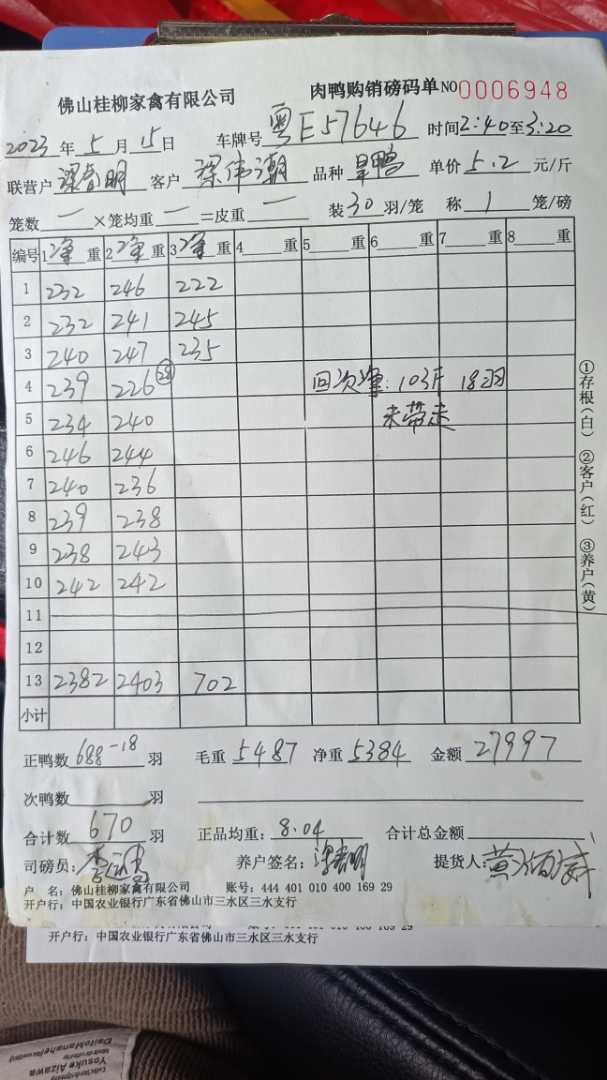 佛山桂柳家禽有限公司 肉鸭购销磅码单 NO 0006948
2023 年 5 月 15 日 车牌号 粤E57646 时间 2:40 至 3:20
联营户 客户 梁伟潮 品种 旱鸭 单价 5.2 元/斤
笼数 一 ×笼均重 一 =皮重 一 装 30 羽/笼 称 1 笼/磅
编号 1 净 重 2 净 重 3 净 重 4 重 5 重 6 重 7 重 8 重
1 232 246 222
2 232 241 245
3 240 247 235
4 239 226 28 回次净: 103斤 18羽
5 234 240 未带走
6 246 244
7 240 236
8 239 238
9 238 243
10 242 242
11
12
13 2382 2403 702
小计
正鸭数 688-18 羽 毛重 5487 净重 5384 金额 27997
次鸭数 羽
合计数 670 羽 正品均重: 8.04 合计总金额
司磅员: 养户签名: 提货人:
户 名: 佛山桂柳家禽有限公司 账号: 444 401 010 400 169 29
开户行: 中国农业银行广东省佛山市三水区三水支行
开户行: 中国农业银行广东省佛山市三水区三水支行
①存根(白) ②客户(红) ③养户(黄)
Yosuke Aizawa